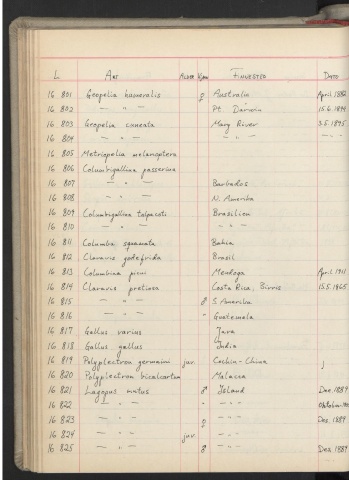 L Art Alder Kjøn Findested Dato
16 801 Geopelia humeralis ♀ Australia April 1886
16 802 — " — Pt. Darwin 15.6.1894
16 803 Geopelia cuneata Mary River 3.5.1895
16 804 — " — — " — — " —
16 805 Metriopelia melanoptera
16 806 Columbigallina passerina
16 807 — " — Barbados
16 808 — " — N. Amerika
16 809 Columbigallina talpacoti Brasilien
16 810 — " — — " —
16 811 Columba squamata Bahia
16 812 Claravis godefrida Brasil
16 813 Columbina picui Mendoza April 1911
16 814 Claravis pretiosa Costa Rica, Birris 15.5.1865
16 815 — " — ♂ S. Amerika
16 816 — " — " Guatemala
16 817 Gallus varius Java
16 818 Gallus gallus India
16 819 Polyplectron germaini juv. Cochin-China
16 820 Polyplectron bicalcaratum Malacca
16 821 Lagopus mutus ♂ Island Dec. 1889
16 822 — " — " — " — Oktober
16 823 — " — ♀ — " — Dec. 1889
16 824 — " — juv. — " —
16 825 — " — ♂ — " — Dec. 1889